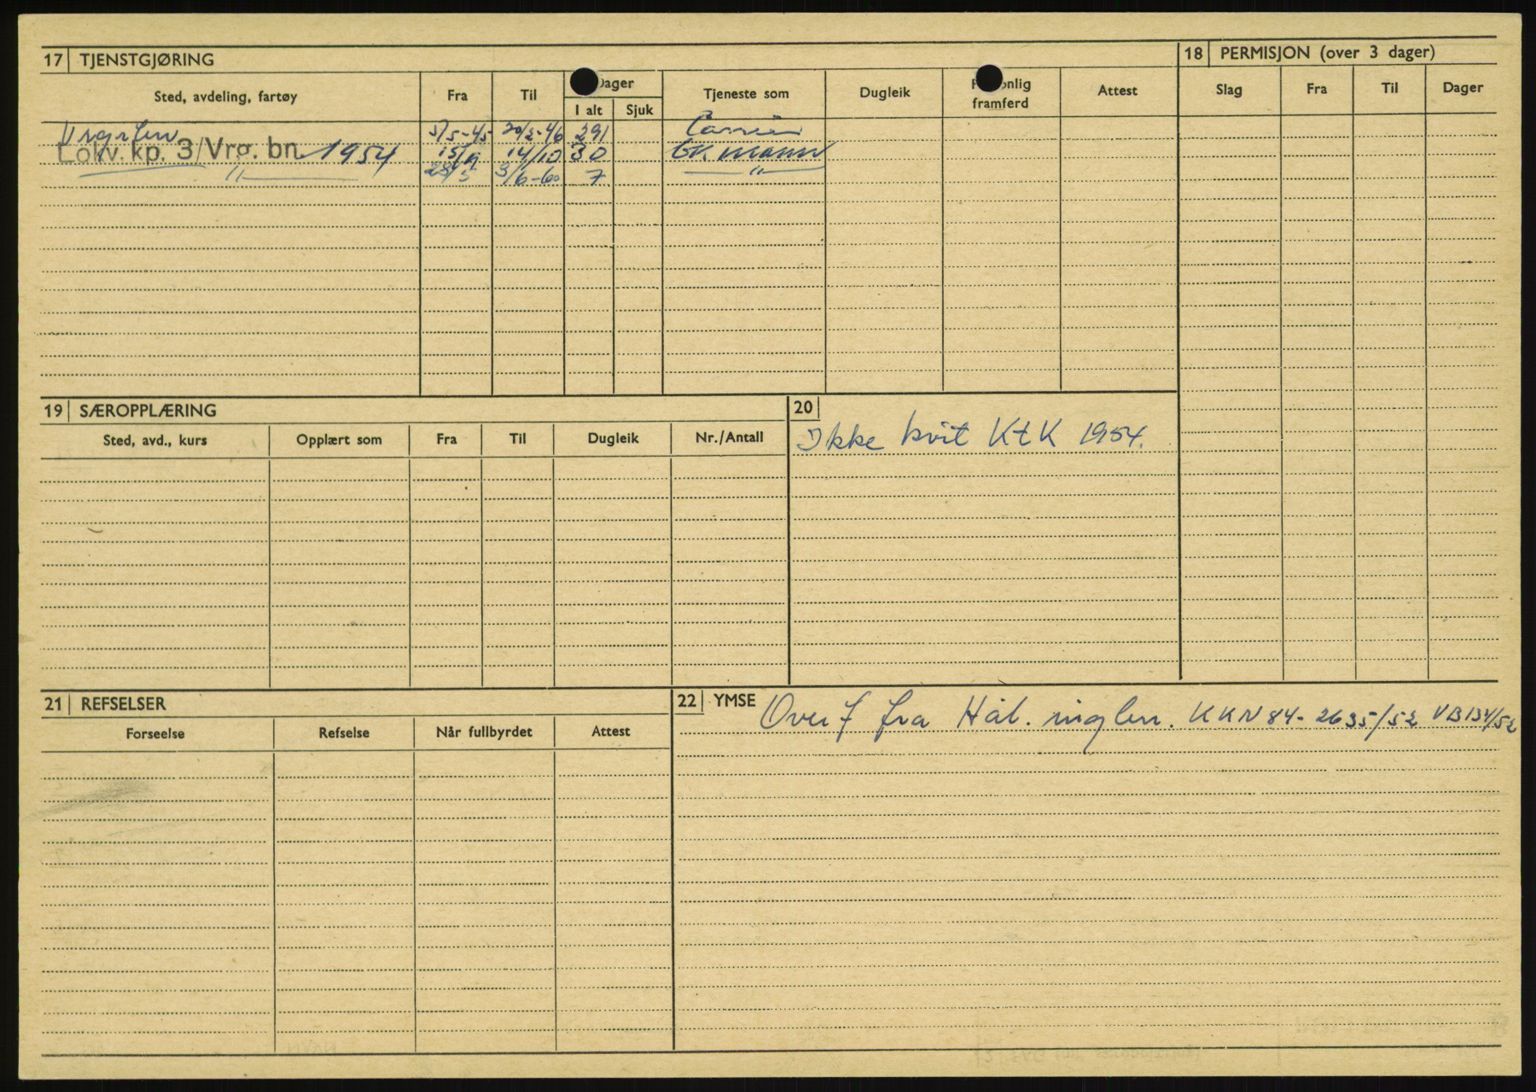 17 TJENSTGJØRING
Sted, avdeling, fartøy Fra Til Dager I alt Sjuk Tjeneste som Dugleik framferd Attest
5/5-45 20/2-46 291
Lokv. kp. 3/Vrg. bn. 1954 15/9 14/10 30 GK mann
" 28/5 3/6-60 7 "
18 PERMISJON (over 3 dager)
Slag Fra Til Dager
19 SÆROPPLÆRING
Sted, avd., kurs Opplært som Fra Til Dugleik Nr./Antall
20
Ikke kvit KtK 1954.
21 REFSELSER
Forseelse Refselse Når fullbyrdet Attest
22 YMSE
Overf fra Hål. KKN 84-2635/52 VB134/52